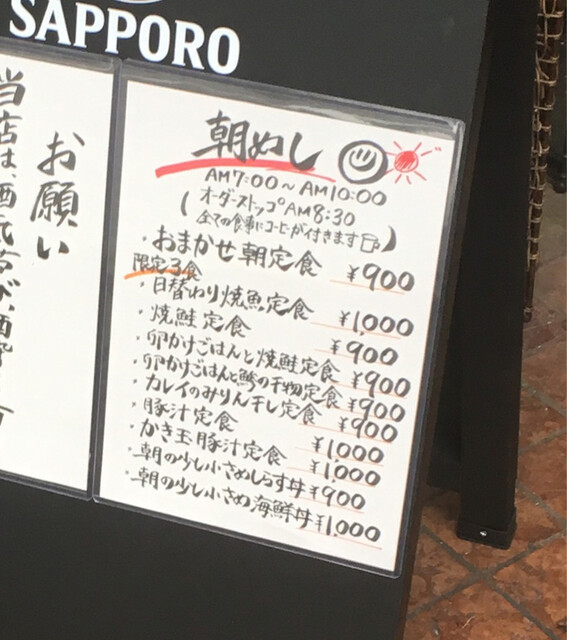 SAPPORO
お願い
当店は、酒
朝めし
AM7:00〜AM10:00
(オーダーストップAM8:30
全ての食事にコーヒーが付きます)
・おまかせ朝定食 ¥900
限定3食
・日替わり焼魚定食 ¥1,000
・焼鮭定食 ¥900
・卵かけごはんと焼鮭定食 ¥900
・卵かけごはんと鯵の干物定食 ¥900
・カレイのみりん干し定食 ¥900
・豚汁定食 ¥1,000
・かき玉豚汁定食 ¥1,000
・朝の少し小さめしらす丼 ¥900
・朝の少し小さめ海鮮丼 ¥1,000